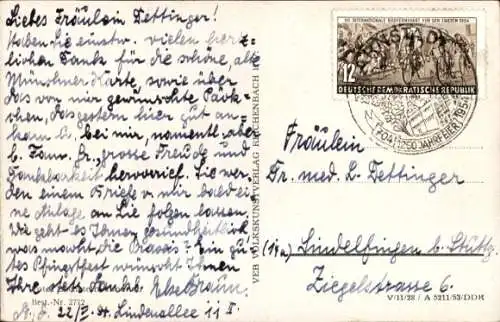 Liebes Fräulein Dettinger!
Haben Sie einstw. vielen herz-
lichen Dank für die schöne, alte
Münchner Karte, sowie über
das von mir gewünschte Päck-
chen, das gestern hier gut an-
kam b. bei mir, namentl. aber
b. Fam. Gr. grosse Freude und
Dankbarkeit hervorrief. Sie wer-
den einem Briefe v. mir bald ei-
ne Anlage an Sie folgen lassen.
Wie geht es Ihnen gesundheitlich
was macht die Praxis? Ein gu-
tes Pfingstfest wünscht Ihnen
Ihre stets dankb. Else Braun,
22/5. 54. Lindenallee 11 II
Best.-Nr. 2712
VEB VOLKSKUNSTVERLAG REICHENBACH
VII. INTERNATIONALE RADFERNFAHRT FÜR DEN FRIEDEN 1954
12
DEUTSCHE DEMOKRATISCHE REPUBLIK
750 JAHRFEIER 1954
Fräulein
Dr. med. L. Dettinger
(14a) Sindelfingen b. Stuttg.
Ziegelstrasse 6.
V/11/28 / A 5211/53/DDR